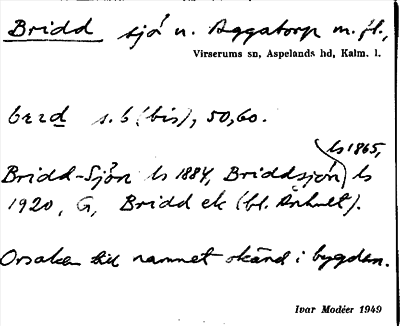 Bridd sjö n. Aggatorp m. fl.,
Virserums sn, Aspelands hd, Kalm. l.
brɪd s. 6 (bis), 50, 60.
ls 1865,
Bridd-Sjön ls 1884, Briddsjön ls
1920, G, Bridd ek (bl. Änhult).
Orsaken till namnet okänd i bygden.
Ivar Modéer 1949